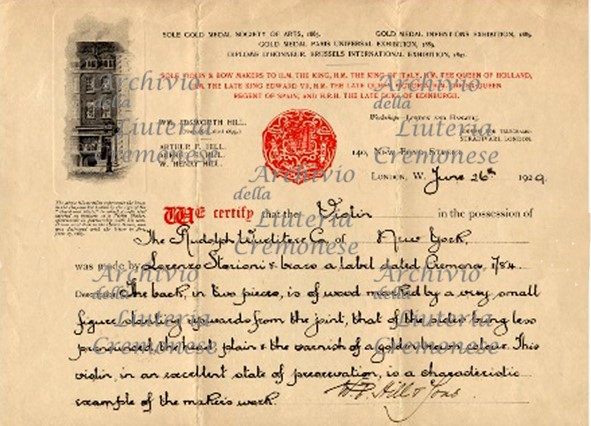 SOLE GOLD MEDAL SOCIETY OF ARTS, 1885.
GOLD MEDAL INVENTIONS EXHIBITION, 1885.
GOLD MEDAL PARIS UNIVERSAL EXHIBITION, 1889.
DIPLOME D'HONNEUR, BRUSSELS INTERNATIONAL EXHIBITION, 1897.
SOLE VIOLIN & BOW MAKERS TO H.M. THE KING, H.M. THE KING OF ITALY, H.M. THE QUEEN OF HOLLAND,
THE LATE KING EDWARD VII, H.M. THE LATE QUEEN QUEEN
REGENT OF SPAIN, AND H.R.H. THE LATE DUKE OF EDINBURGH.
WM. EBSWORTH HILL.
ARTHUR F. HILL.
W. HENRY HILL.
Workshops
STRADIVARI, LONDON.
140, New Bond Street
London, W. June 26th 1929.
We certify that the Violin in the possession of
The Rudolph Wurlitzer Co of New York,
was made by Lorenzo Storioni & bears a label dated Cremona 1784
The back, in two pieces, is of wood marked by a very small
figure slanting upwards from the joint, that of the sides being less
pronounced, the head plain & the varnish of a golden-brown colour. This
violin, in an excellent state of preservation, is a characteristic
example of the maker's work.
W. E. Hill & Sons
Archivio
della
Liuteria
Cremonese
Archivio
della
Liuteria
Cremonese
Archivio
della
Liuteria
Cremonese
Archivio
della
Liuteria
Cremonese
Archivio
della
Liuteria
Cremonese